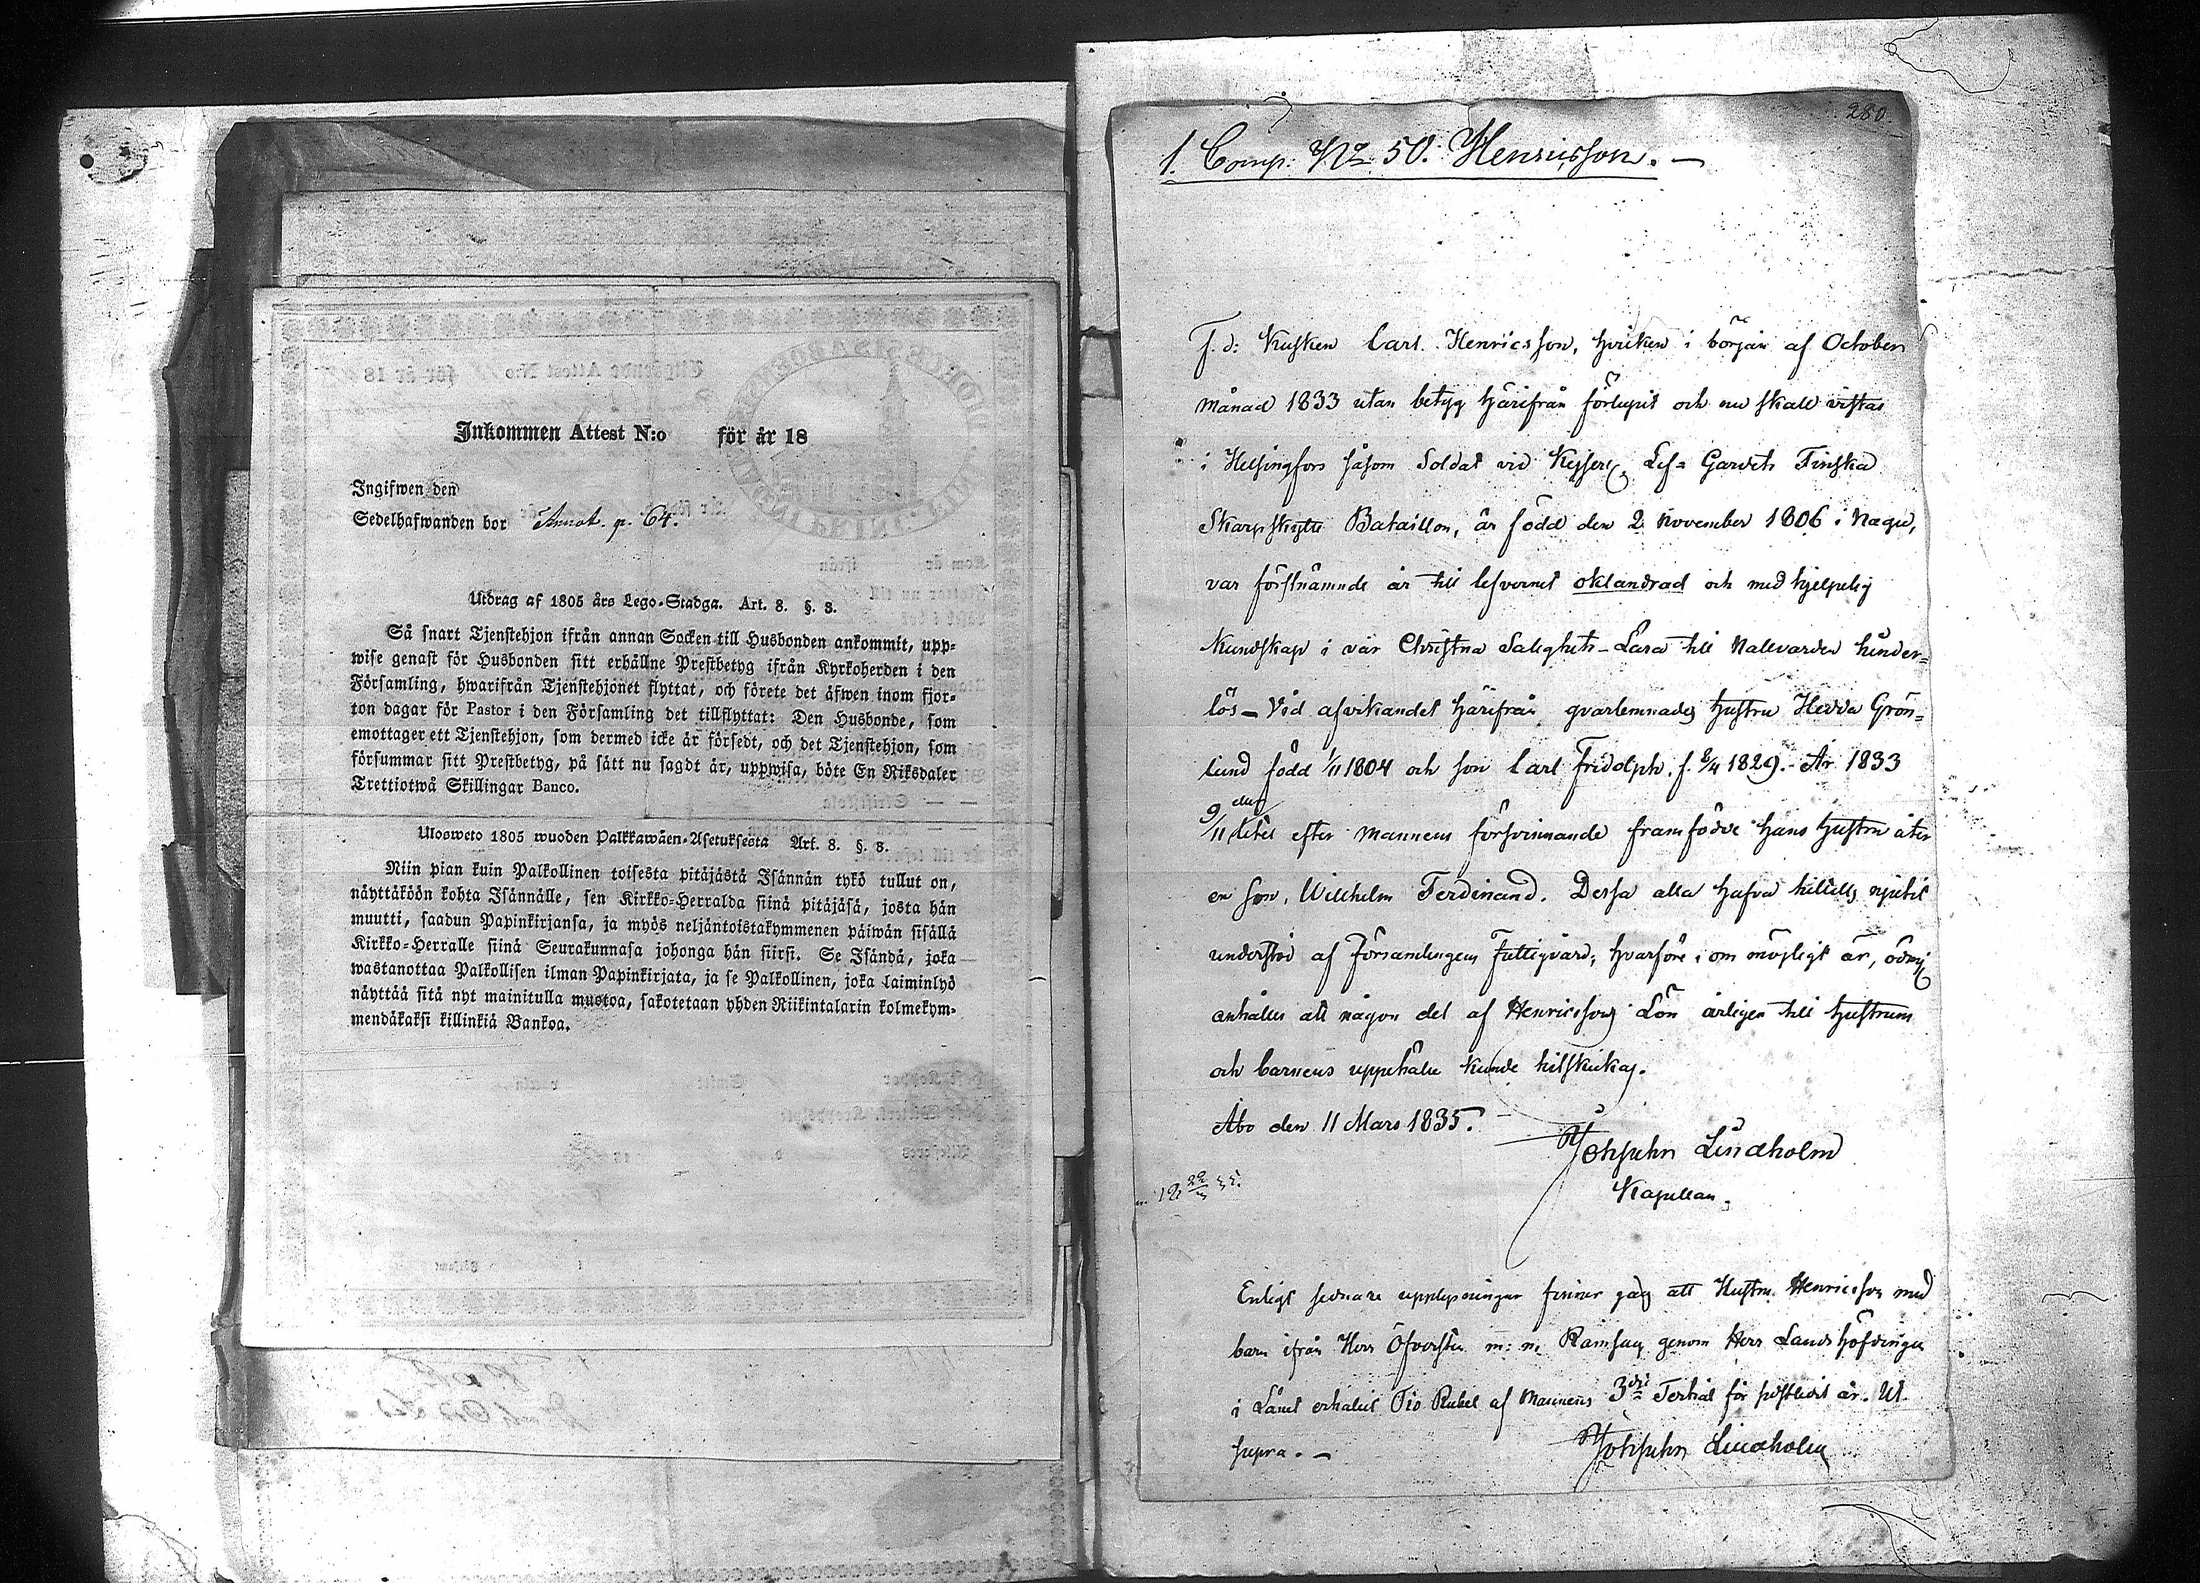 Inkommen Attest N:o för år 18
Ingifwen den
Sedelhafwanden bor Annot. p. 64.
Utdrag af 1805 års Lego-Stadga. Art. 8. §. 8.
Så snart Tjenstehjon ifrån annan Socken till Husbonden ankommit, upp-
wise genast för Husbonden sitt erhållne Prestbetyg ifrån Kyrkoherden i den
Församling, hwarifrån Tjenstehjonet flyttat, och förete det äfwen inom fjor-
ton dagar för Pastor i den Församling det tillflyttat: Den Husbonde, som
emottager ett Tjenstehjon, som dermed icke är försedt, och det Tjenstehjon, som
försummar sitt Prestbetyg, på sätt nu sagdt är, uppwisa, böte En Riksdaler
Trettiotwå Skillingar Banco.
Ulosweto 1805 wuoden Palkkawäen-Asetuksesta Art. 8. §. 8.
Niin pian kuin Palkollinen toisesta pitäjästä Isännän tykö tullut on,
näyttäköön kohta Isännälle, sen Kirkko-Herralda siinä pitäjäsä, josta hän
muutti, saadun Papinkirjansa, ja myös neljäntoistakymmenen päiwän sisällä
Kirkko-Herralle siinä Seurakunnasa johonga hän siirsi. Se Isändä, joka
wastanottaa Palkollisen ilman Papinkirjata, ja se Palkollinen, joka laiminlyö
näyttää sitä nyt mainitulla mustoa, sakotetaan yhden Riikintalarin kolmekym-
mendäkaksi killinkiä Bankoa.
280
1. Comp: No 50. Henricsson. —
F. d: Kusken Carl Henricsson, hvilken i början af October
månad 1833 utan betyg härifrån förlupit och nu skall vistas
i Helsingfors såsom Soldat vid Kejserl. Lif-Gardets Finska
Skarpskytte Bataillon, är född den 2 November 1806 i Nagu,
var förstnämnde år till lefvernet oklandrad och med hjelpelig
Kundskap i vår Christna Salighets-Lära till Nattvarden hinder=
lös — Vid afvikandet härifrån qvarlemnades hustru Hedda Grön=
lund född 1/11 1804 och son Carl Fridolph. f. 8/4 1829. År 1833
9/11 efter mannens försvinnande framfödde hans hustru åter
en son, Willhelm Ferdinand. Dessa alla hafva tilldels njutit
understöd af Församlingens Fattigvård, hvarföre i om möjligt är, ödmj.
anhålles att någon del af Henricssons Lön årligen till hustruns
och barnens uppehälle kunde tillskickas.
Åbo den 11 Mars 1835.
Lindholm
Kapellan.
Enligt sednare upplysningar finner jag att Hustru Henricsson med
barn ifrån Herr Öfversten m: m. Ramsay genom Herr Landshöfdingen
i Länet erhållit Tio Rubel af Mannens 3dje Tertial för sistledit år. Ut
supra. —
Lindholm